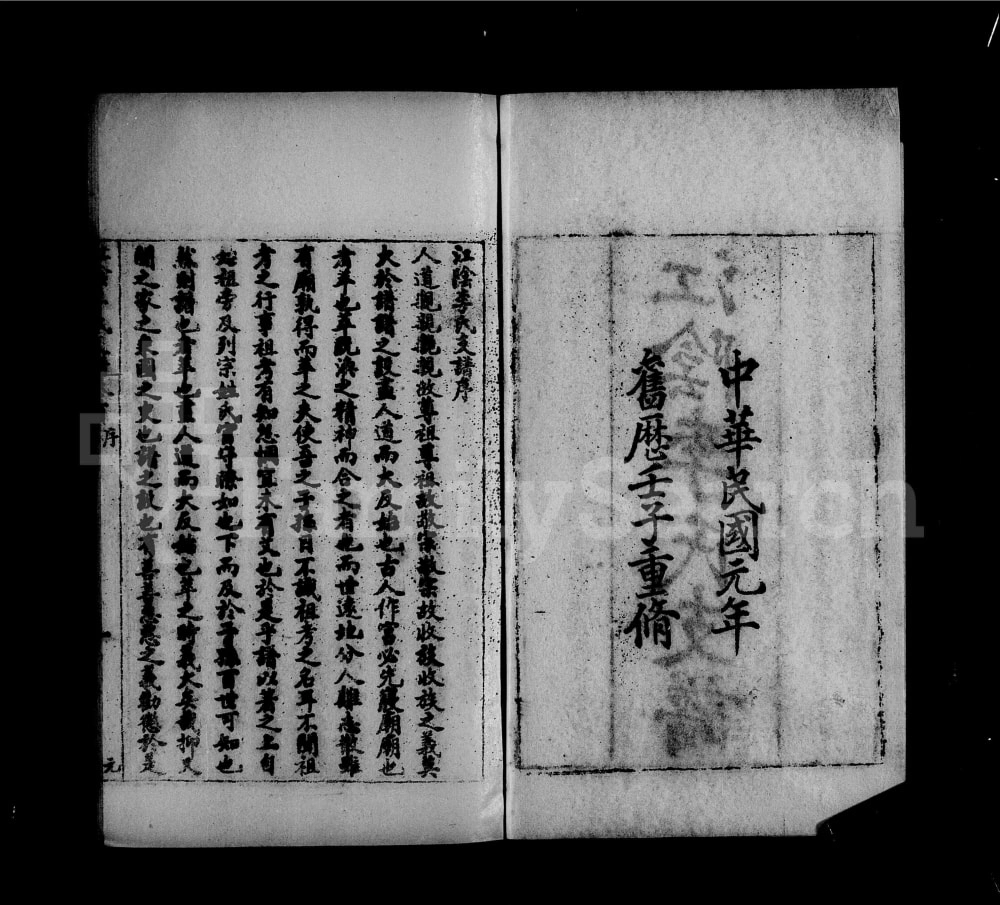 中華民國元年
舊歴壬子重脩
江陰李氏支譜
江陰李氏支譜序
人道親親親親故尊祖尊祖故敬宗敬宗故收族收族之義莫
大於譜譜之設盡人道而大反始也古人作宮必先寢廟廟也
者萃也萃既渙之精神而合之者也而世遠地分人離志散雖
有廟孰得而萃之夫使吾之子孫目不識祖考之名耳不聞祖
考之行事祖考有知怨恫宜未有艾也於是乎譜以著之上自
始祖旁及列宗姓氏官守臚如也下而及於子孫百世可知也
然則譜也者萃也盡人道而大反始也萃之時義大矣哉抑又
聞之家之乘國之史也譜之設也有善善惡惡之義勸懲於是
序
元
FamilySearch